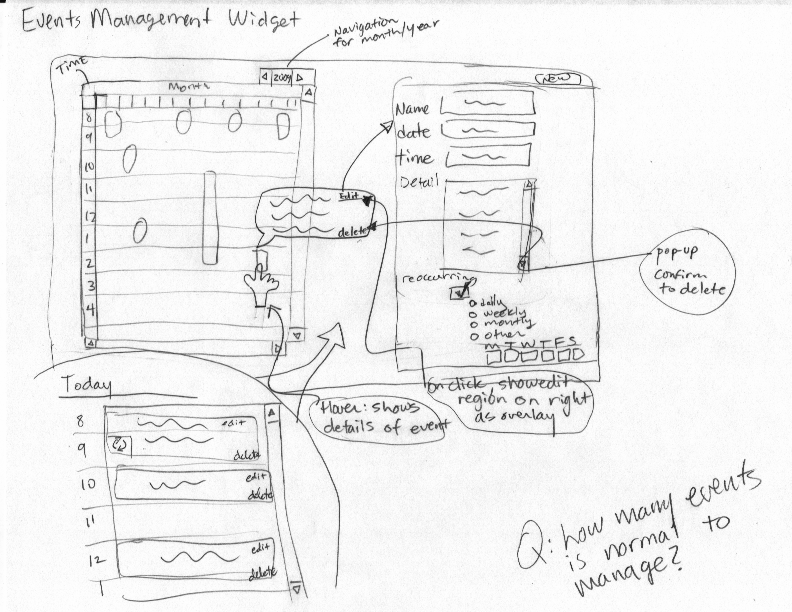 Events Management Widget
Navigation
for month/year
Time
Month
2009
8
9
10
11
12
1
2
3
4
Edit
delete
New
Name
date
time
Detail
reoccurring
daily
weekly
montly
other
M T W T F S
pop-up
confirm
to delete
On click show edit
region on right
as overlay
Hover: shows
details of event
Today
8
9
10
11
12
1
edit
delete
edit
delete
edit
delete
Q: how many events
is normal to
manage?